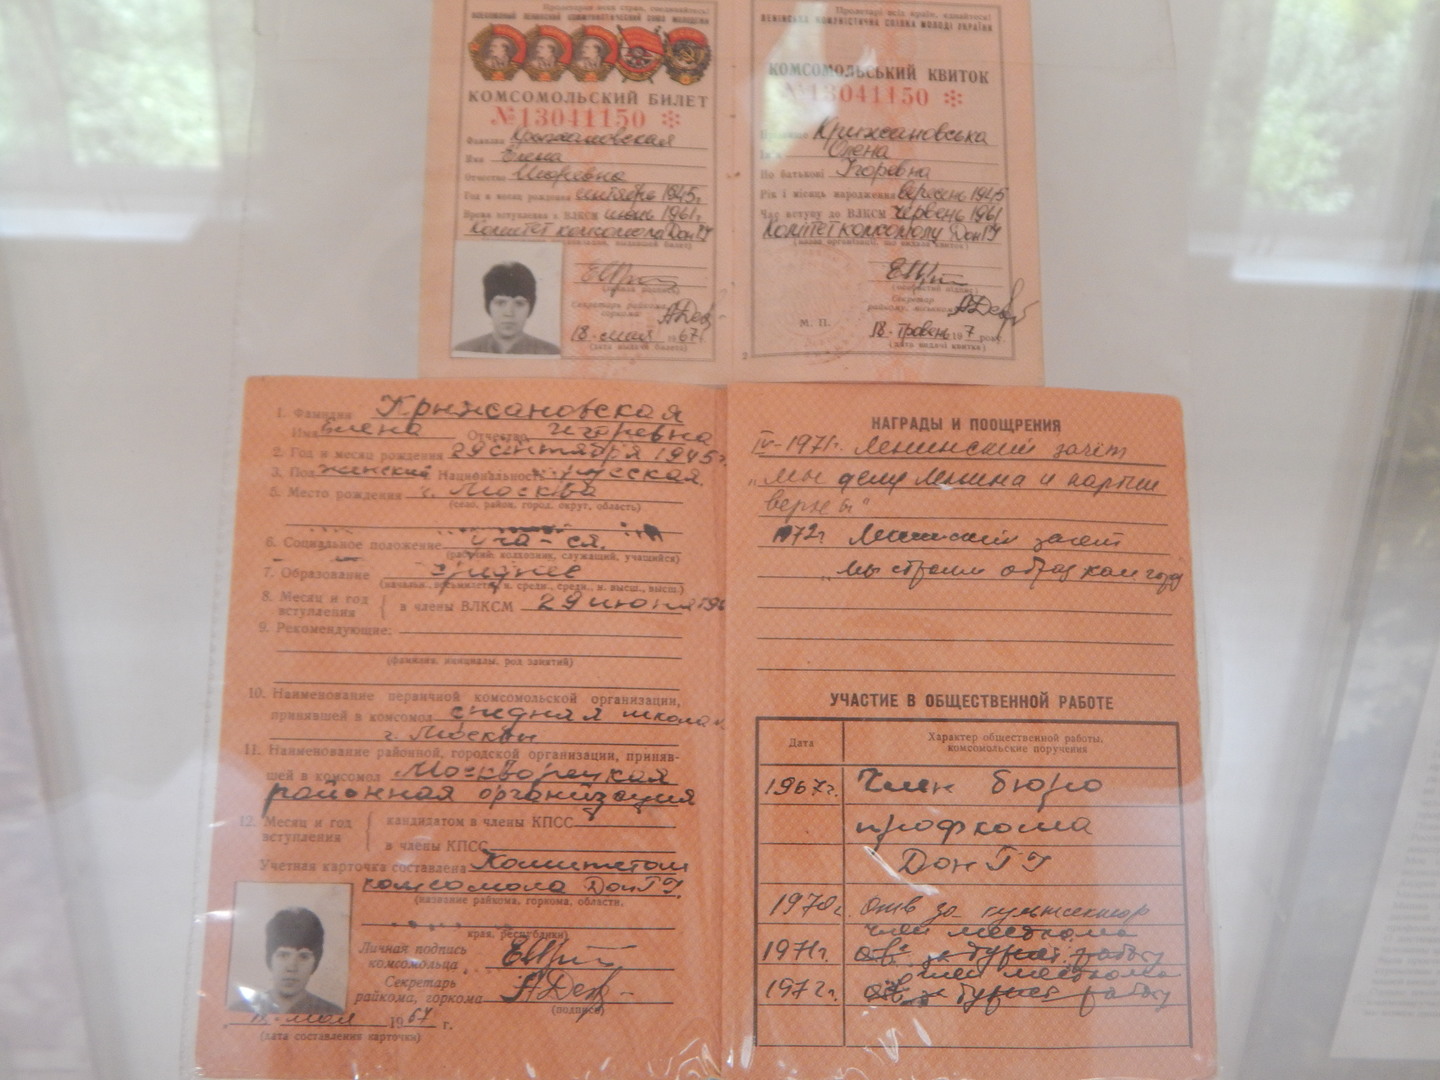 Пролетарии всех стран, соединяйтесь!
ВСЕСОЮЗНЫЙ ЛЕНИНСКИЙ КОММУНИСТИЧЕСКИЙ СОЮЗ МОЛОДЕЖИ
КОМСОМОЛЬСКИЙ БИЛЕТ
№13041150
Фамилия Крижановская
Имя Елена
Отчество Игоревна
Год и месяц рождения сентябрь 1945г
Время вступления в ВЛКСМ июнь 1961г
Комитет комсомола ДонГУ
(личная подпись)
Секретарь райкома, горкома
18 мая 1967г.
(дата выдачи билета)
Пролетарі всіх країн, єднайтеся!
ЛЕНІНСЬКА КОМУНІСТИЧНА СПІЛКА МОЛОДІ УКРАЇНИ
КОМСОМОЛЬСЬКИЙ КВИТОК
№13041150
Крижановська
Олена
По батькові Ігоревна
Рік і місяць народження вересень 1945
Час вступу до ВЛКСМ червень 1961
Комітет комсомолу ДонГУ
(особистий підпис)
Секретар
райкому, міськкому
М. П.
18 травень 197 року.
(дата видачі квитка)
2
1. Фамилия Крыжановская
Имя Елена Отчество Игоревна
2. Год и месяц рождения 29 сентября 1945г
3. Пол женский Национальность русская
5. Место рождения г. Москва
(село, район, город, округ, область)
6. Социальное положение уча-ся.
(рабочий, колхозник, служащий, учащийся)
7. Образование среднее
8. Месяц и год вступления в члены ВЛКСМ 29 июня 196
9. Рекомендующие:
(фамилия, инициалы, род занятий)
10. Наименование первичной комсомольской организации,
принявшей в комсомол средняя школа
г. Москвы
11. Наименование районной, городской организации, приняв-
шей в комсомол Москворецкая
районная организация
12. Месяц и год вступления кандидатом в члены КПСС
в члены КПСС
Учетная карточка составлена Комитетом
комсомола ДонГУ.
(название райкома, горкома, области,
края, республики)
Личная подпись
комсомольца
Секретарь
райкома, горкома
(подпись)
мая 1967 г.
(дата составления карточки)
НАГРАДЫ И ПООЩРЕНИЯ
IV-1971г. Ленинский зачёт
„Мы делу Ленина и партии
верны“
1972г. Ленинский зачет
„Мы строим
УЧАСТИЕ В ОБЩЕСТВЕННОЙ РАБОТЕ
Дата
Характер общественной работы,
комсомольские поручения
1967г. Член бюро
профкома
ДонГУ
1970г. отв за культсектор
член месткома
1971г.
член месткома
1972г.